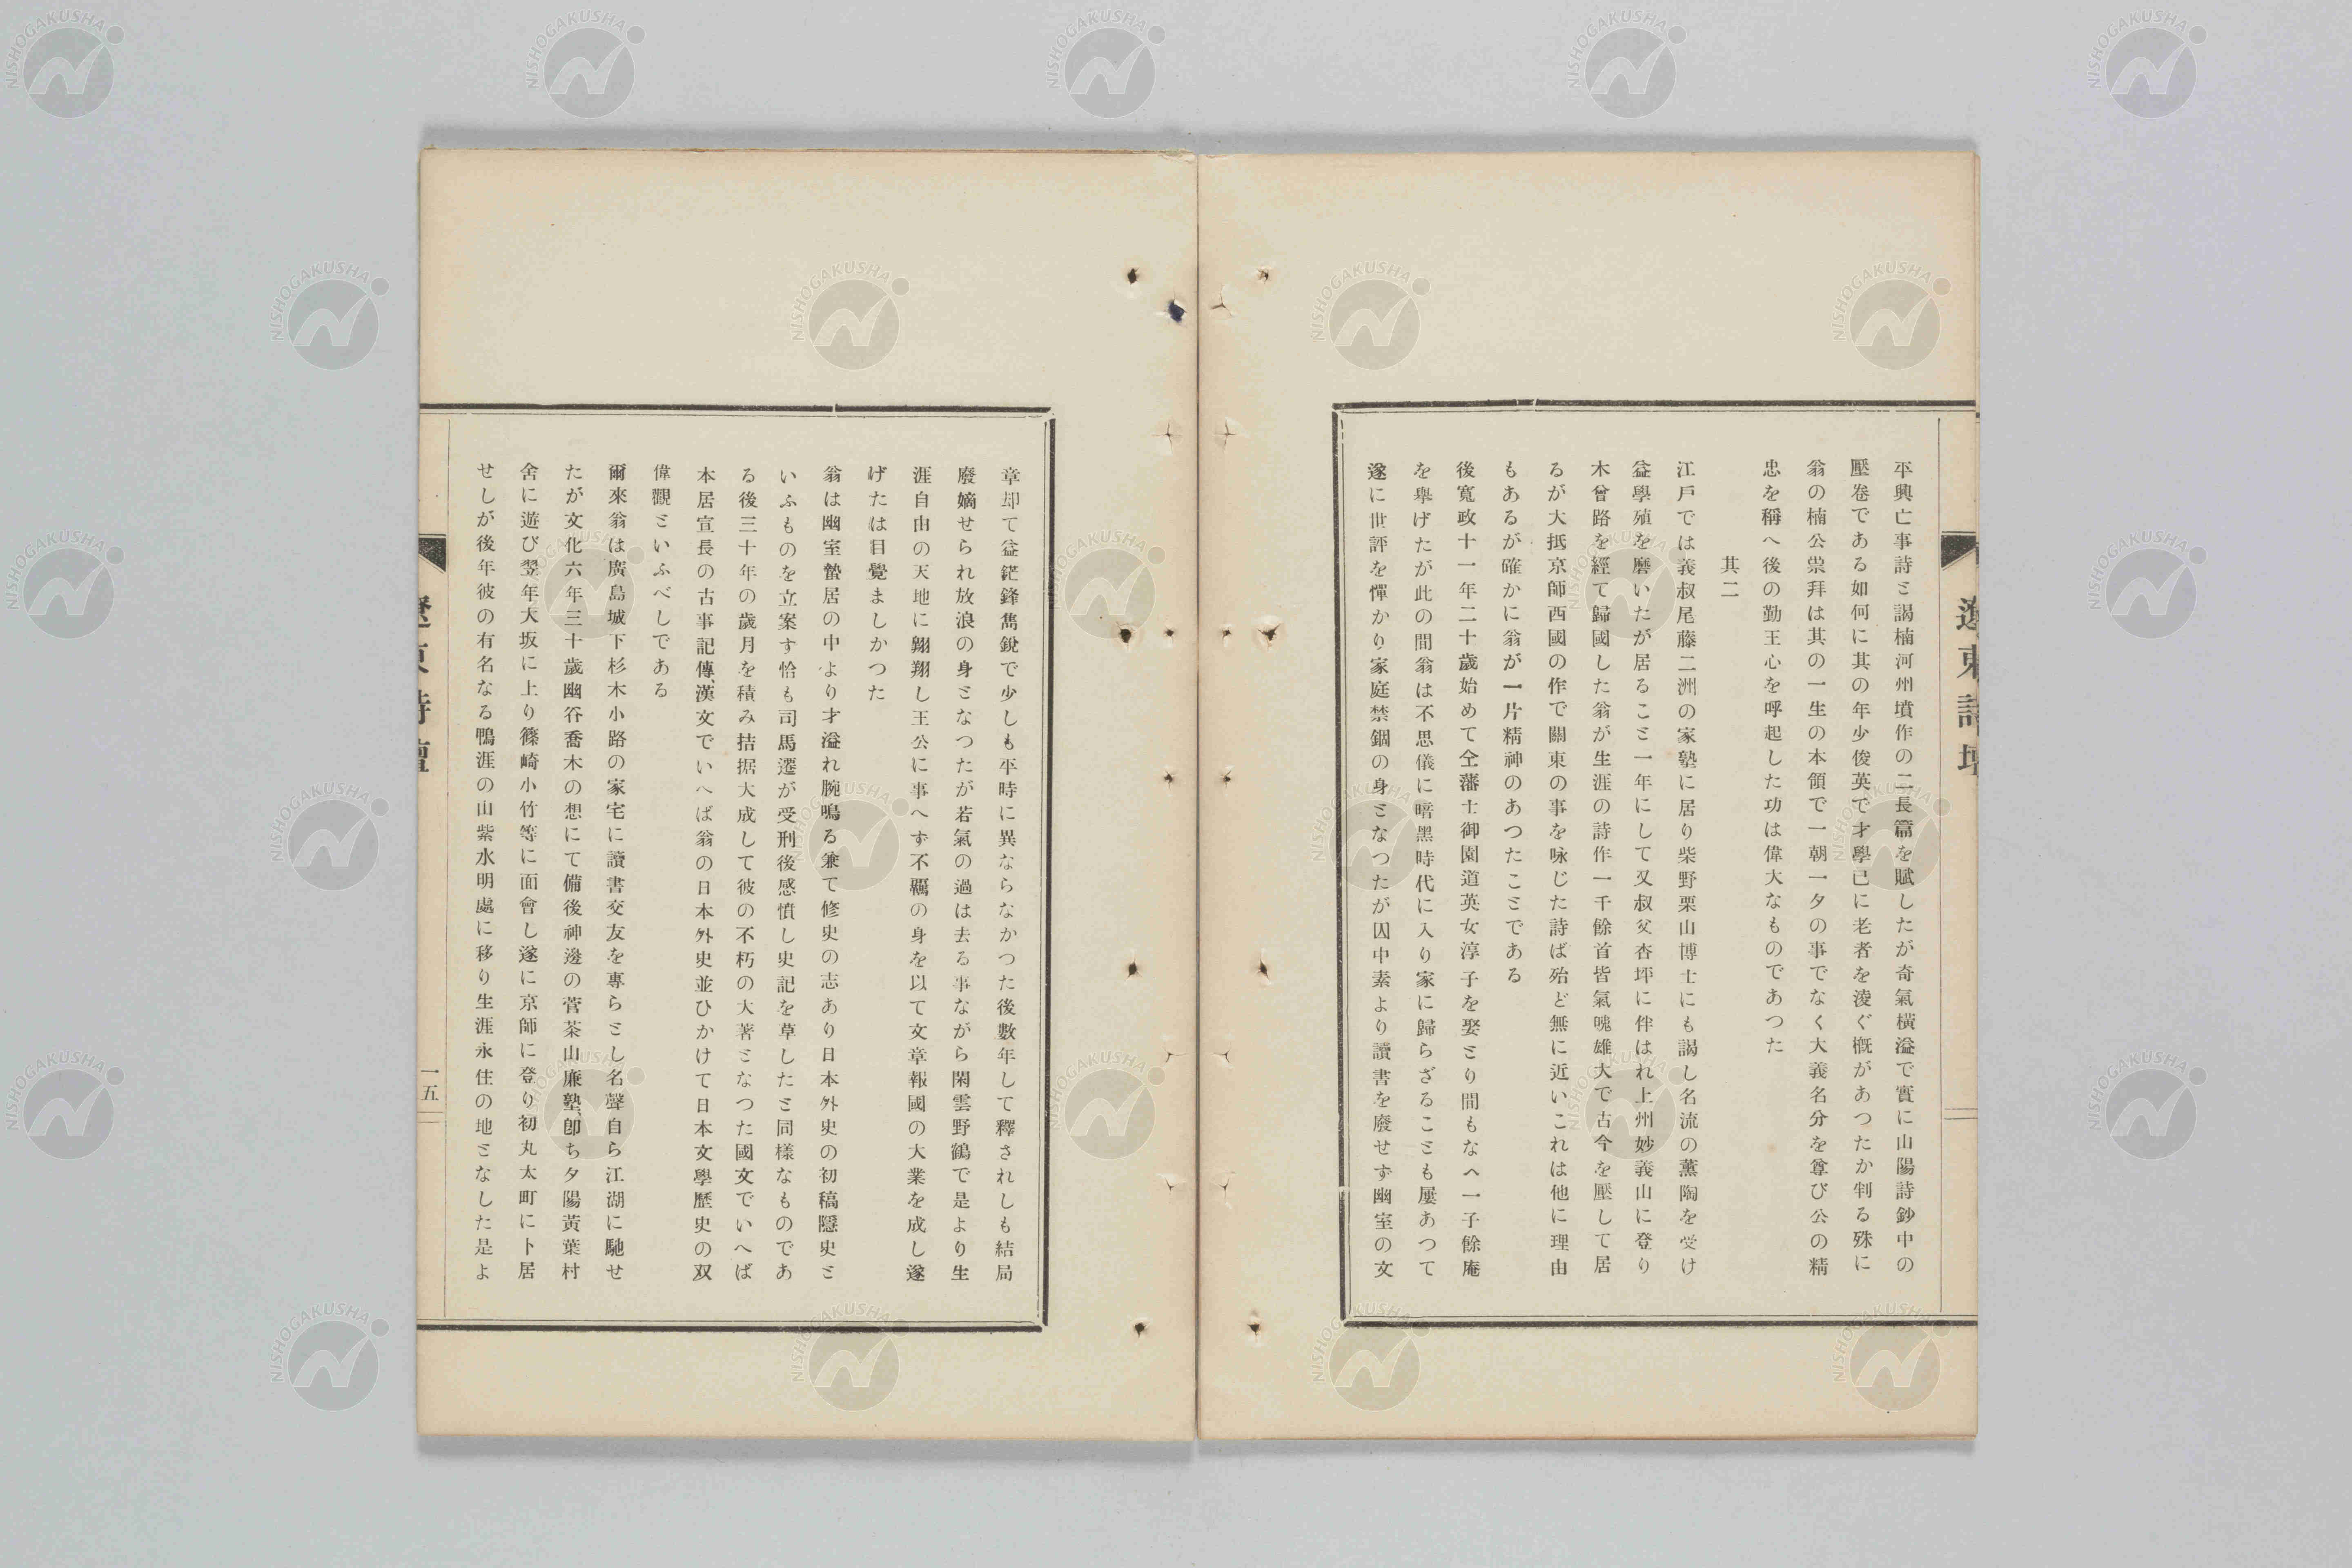 平興亡事詩ミ謁楠河州墳作の二長篇を賦したが奇氣横溢で實に山陽詩鈔中の
壓卷である如何に其の年少俊英で才學已に老者を凌ぐ概があつたか判る殊に
翁の楠公崇拜は其の一生の本領で一朝一夕の事でなく大義名分を尊び公の精
忠を稱へ後の勤王心を呼起した功は偉大なものであつた
其二
江戸では義叔尾藤二洲の家塾に居り柴野栗山博士にも謁し名流の薫陶を受け
益學殖を磨いたが居るこミ一年にして又叔父杏坪に伴はれ上州妙義山に登り
木曾路を經て歸國した翁が生涯の詩作一千餘首皆氣魄雄大で古今を壓して居
るが大抵京師西國の作で關東の事を咏じた詩ば殆ど無に近いこれは他に理由
もあるが確かに翁が一片精神のあつたこミである
後寬政十一年二十歲始めて仝藩士御園道英女淳子を娶ミり間もなへ一子餘庵
を擧げたが此の間翁は不思儀に暗黑時代に入り家に歸らざるこミも屢あつて
遂に世評を憚かり家庭禁錮の身ミなつたが囚中素より讀書を廢せず幽室の文
章却て益鋩鋒雋銳で少しも平時に異ならなかつた後數年して釋されしも結局
廢嫡せられ放浪の身ミなつたが若氣の過は去る事ながら閑雲野鶴で是より生
涯自由の天地に翺翔し王公に事へず不羈の身を以て文章報國の大業を成し遂
げたは目覺ましかつた
翁は幽室蟄居の中より才溢れ腕鳴る兼て修史の志あり日本外史の初稿隱史ミ
いふものを立案す恰も司馬遷が受刑後感憤し史記を草したミ同樣なものであ
る後三十年の歲月を積み拮据大成して彼の不朽の大著ミなつた國文でいへば
本居宣長の古事記傳、漢文でいへば翁の日本外史並ひかけて日本文學歷史の双
偉觀ミいふべしである
爾來翁は廣島城下杉木小路の家宅に讀書交友を專らミし名聲自ら江湖に馳せ
たが文化六年三十歲幽谷喬木の想にて備後神邊の菅茶山廉塾、卽ち夕陽黃葉村
舍に遊び翌年大坂に上り篠崎小竹等に面會し遂に京師に登り初丸太町に卜居
せしが後年彼の有名なる鴨涯の山紫水明處に移り生涯永住の地ミなした是よ
一五